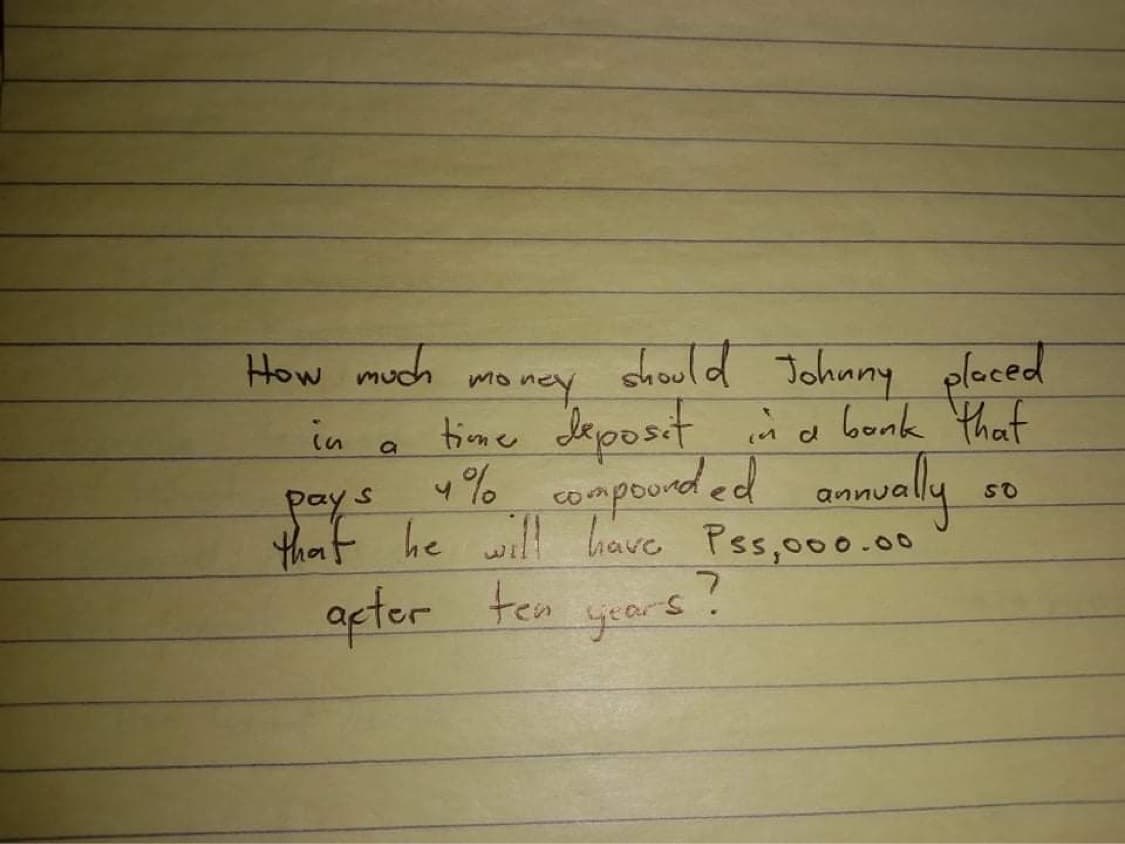 How much money should Johnny placed
in a time deposit in a bank that
pays 4% compounded annually so
that he will have P55,000.00
after ten years?